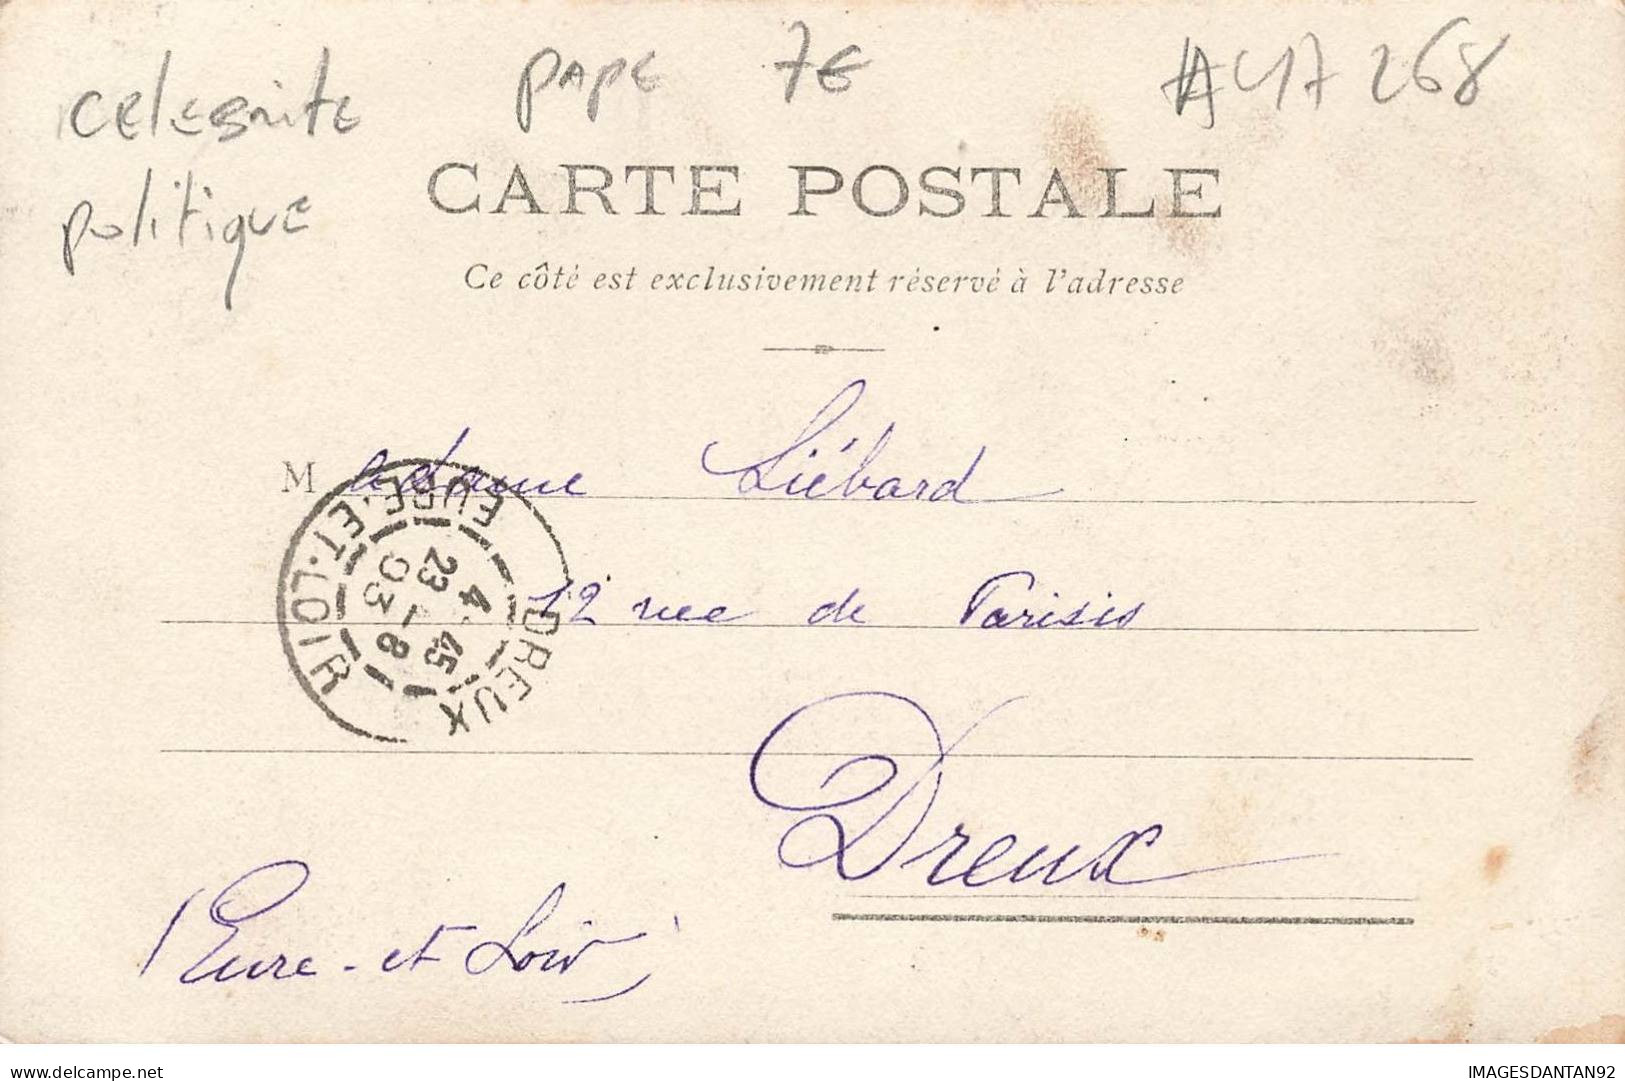 celebrite pape 7€ #A417 268
politique
CARTE POSTALE
Ce côté est exclusivement réservé à l'adresse
Madame Liébard
12 rue de Parisis
Dreux
(Eure-et Loir)
DREUX
EURE-ET-LOIR
4 45
23 -8
03
IMAGESDANTAN92